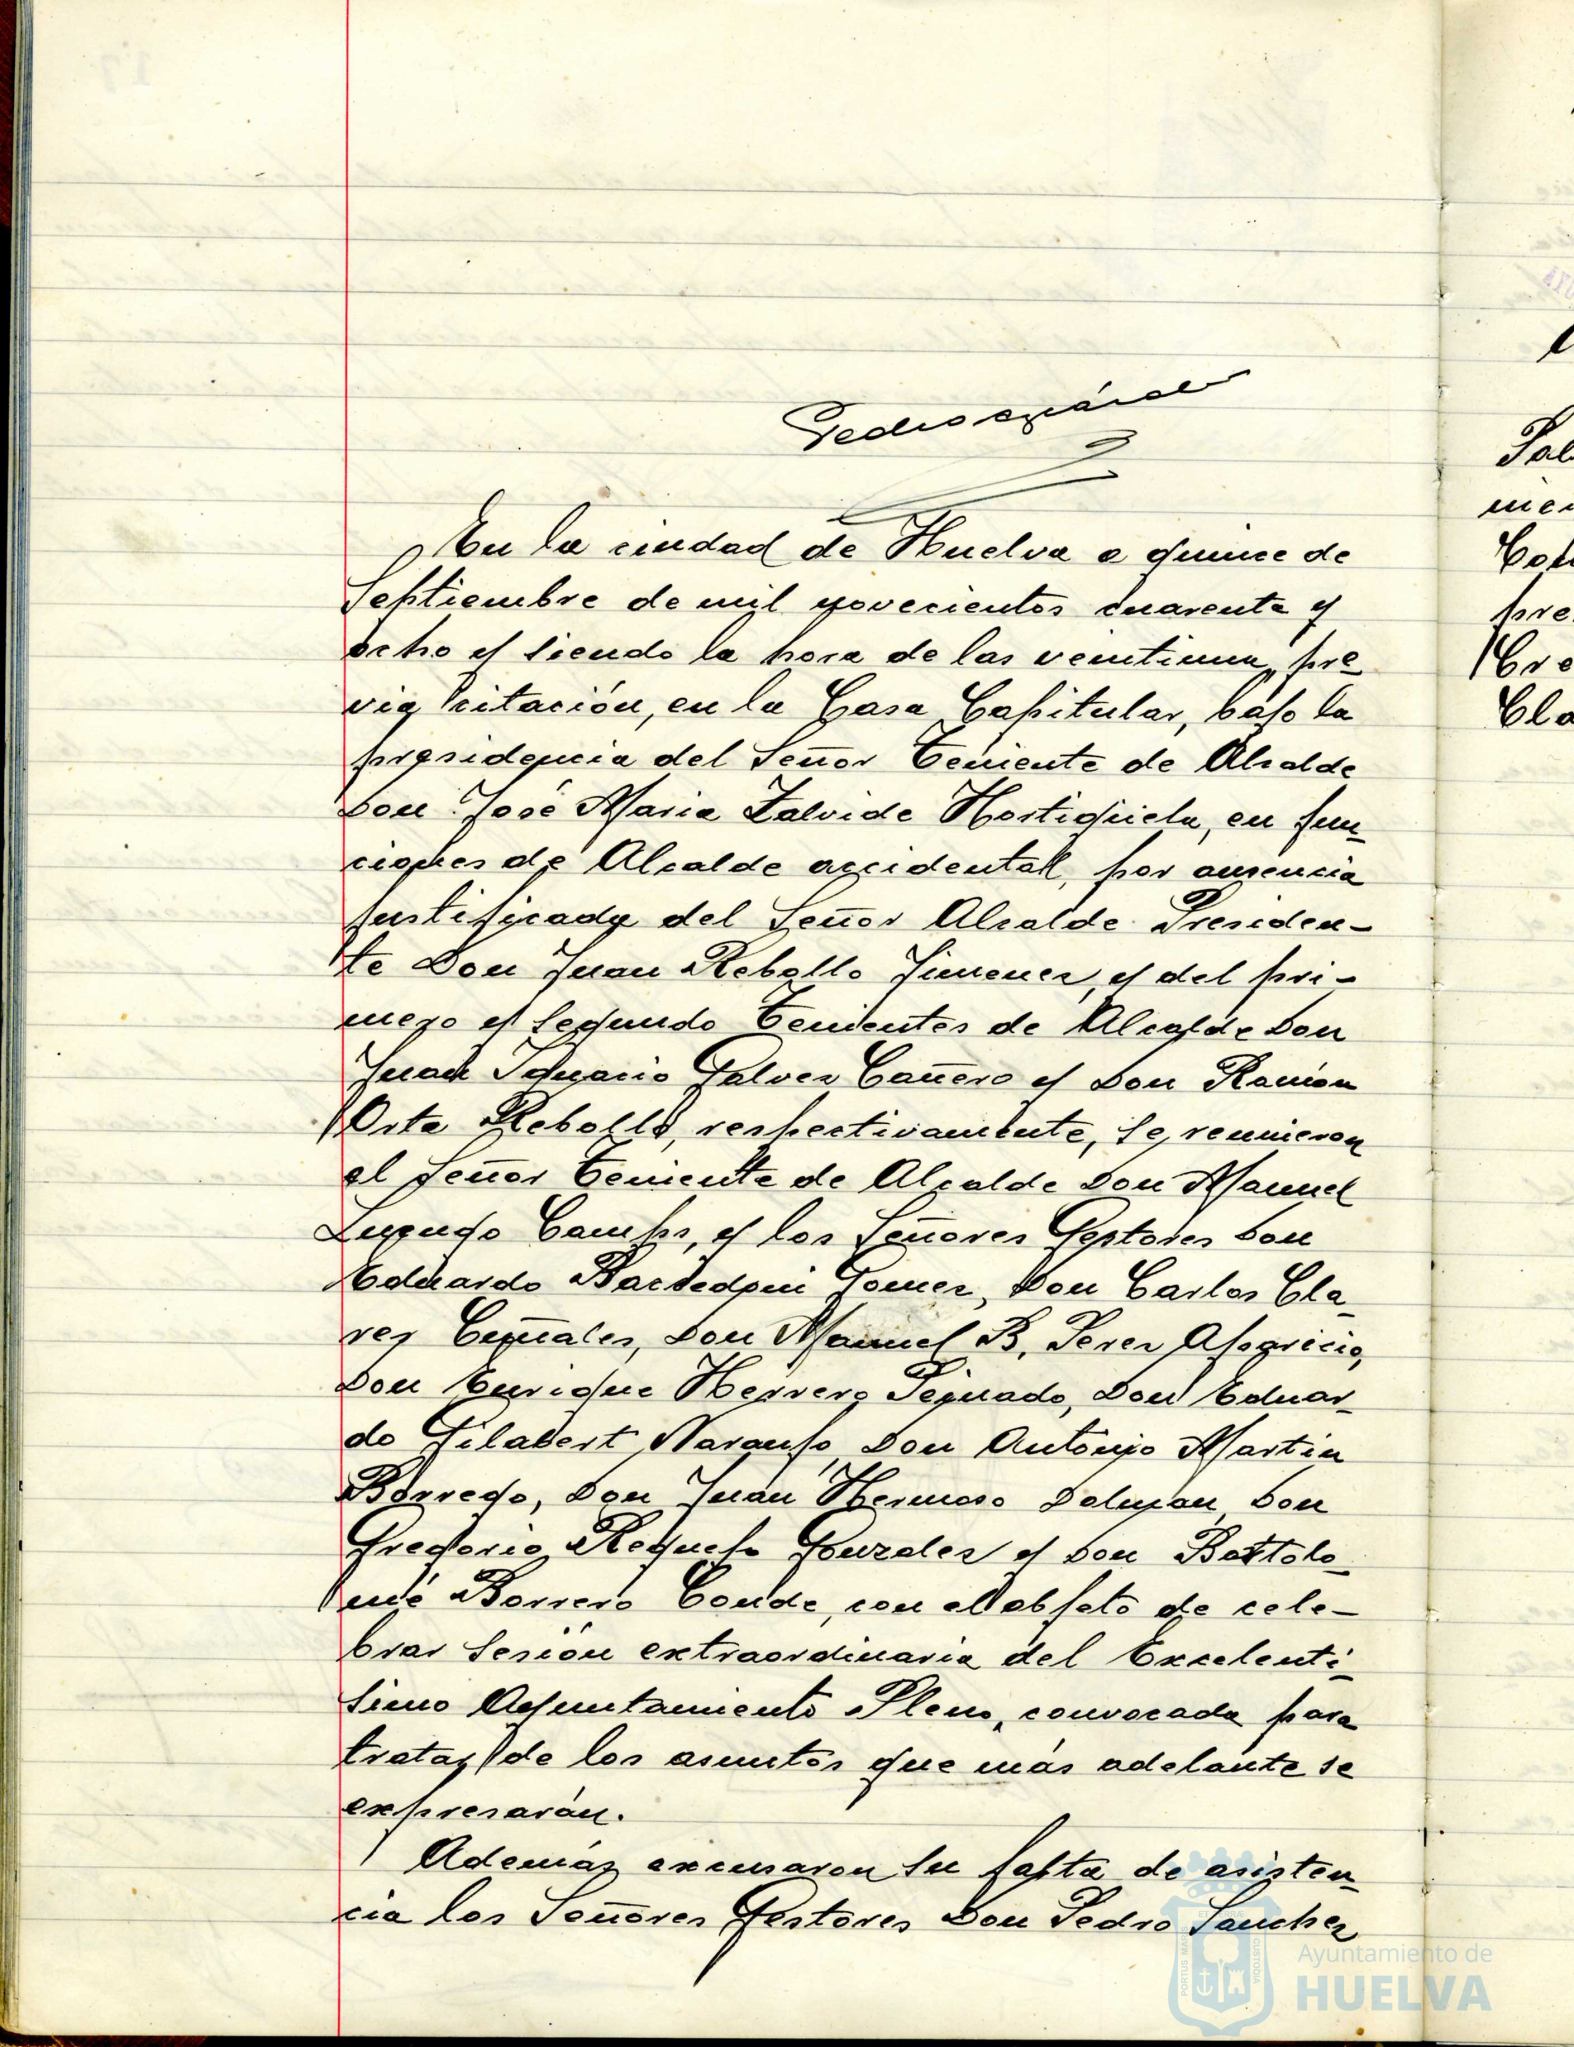 En la ciudad de Huelva a quince de
Septiembre de mil novecientos cuarenta y
ocho y siendo la hora de las veintiuna, pre-
via citación, en la Casa Capitular, bajo la
presidencia del Señor Teniente de Alcalde
Don José Maria Zalvide Hortigüela, en fun-
ciones de Alcalde accidental, por ausencia
justificada del Señor Alcalde Presiden-
te Don Juan Rebollo Jimenez, y del pri-
mero y segundo Tenientes de Alcalde Don
Juan Ignacio Galvez Cañero y Don Ramón
Orta Rebollo, respectivamente, se reunieron
el Señor Teniente de Alcalde Don Manuel
y los Señores Gestores Don
Eduardo Gomez, Don Carlos Cla-
res Don Manuel B. Perez Aparicio,
Don Enrique Herrero Peguado, Don Eduar-
do Gilabert Naranjo, Don Antonio Martin
Borrego, Don Juan Hermoso Don
Gregorio Gonzalez y Don Bartolo-
mé Borrero Conde, con el objeto de cele-
brar sesión extraordinaria del Excelentí-
simo Ayuntamiento Pleno, convocada para
tratar de los asuntos que más adelante se
expresarán.
Además excusaron su falta de asisten-
cia los Señores Gestores Don Pedro Sanchez
Ayuntamiento de
HUELVA